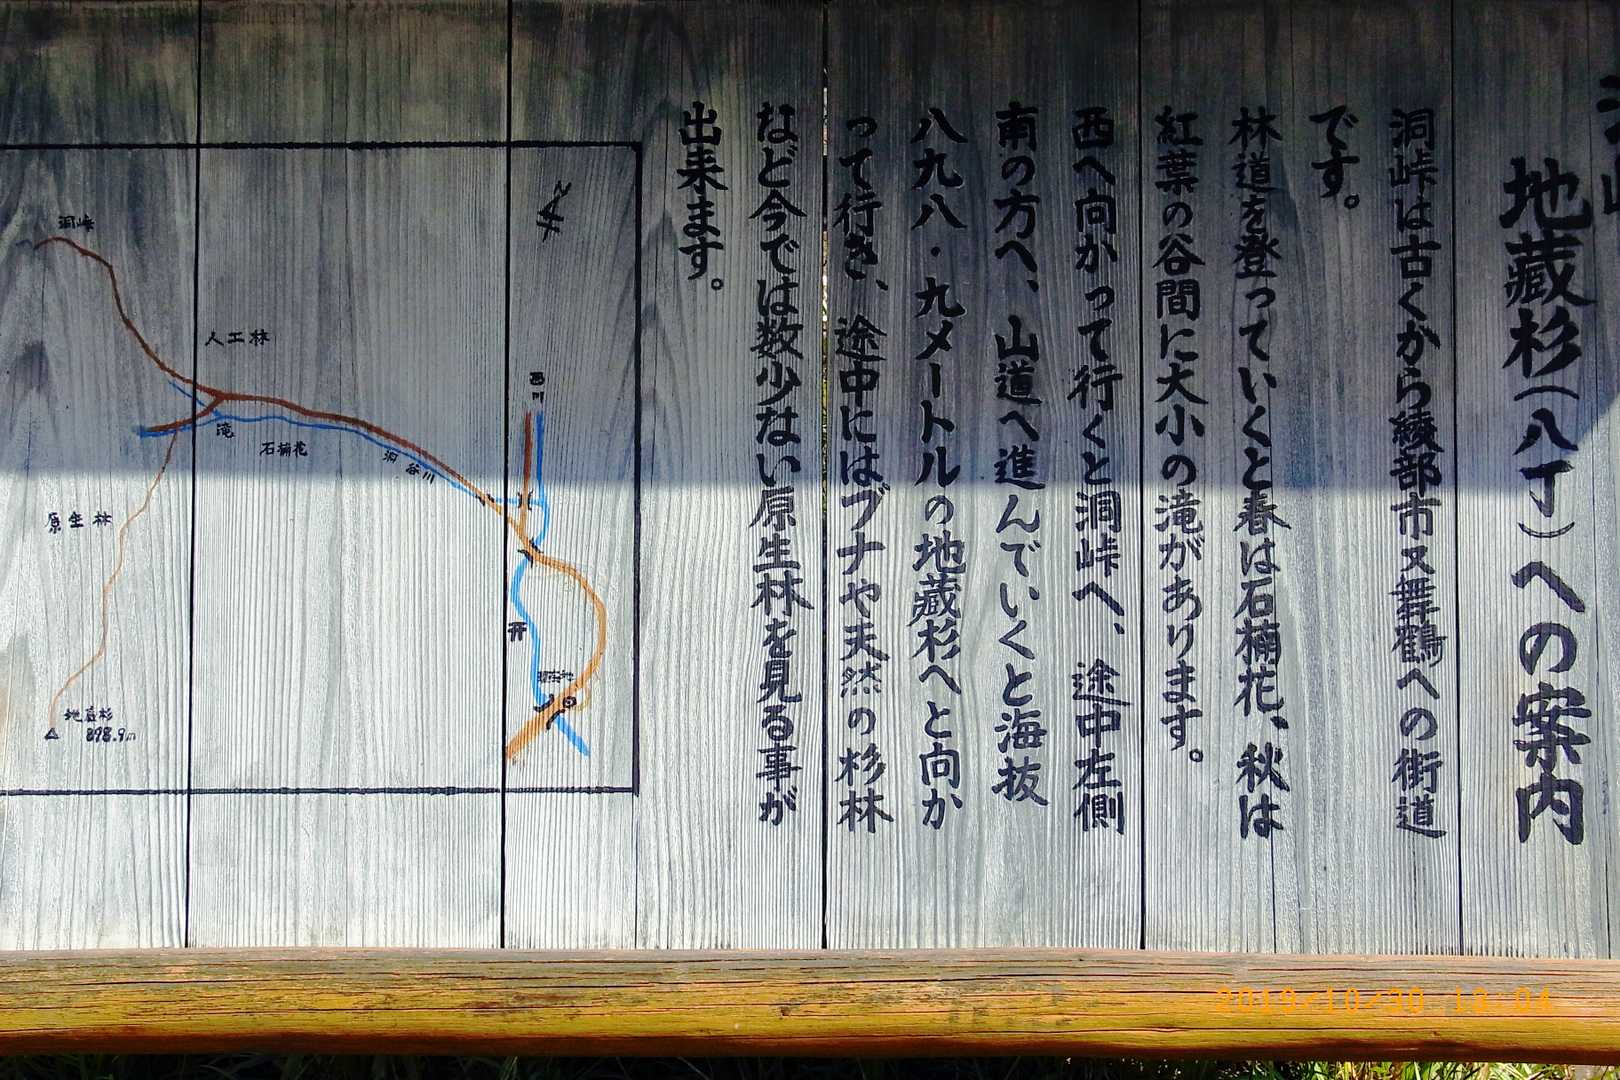 地蔵杉(八丁)への案内
洞峠は古くから綾部市又舞鶴への街道
です。
林道を登っていくと春は石楠花、秋は
紅葉の谷間に大小の滝があります。
西へ向かって行くと洞峠へ、途中左側
南の方へ、山道へ進んでいくと海抜
八九八・九メートルの地蔵杉へと向か
って行き、途中にはブナや天然の杉林
など今では数少ない原生林を見る事が
出来ます。
N
洞峠
人工林
滝
石楠花
洞谷川
西川
原生林
地蔵杉
898.9m
2019/10/30 13:04